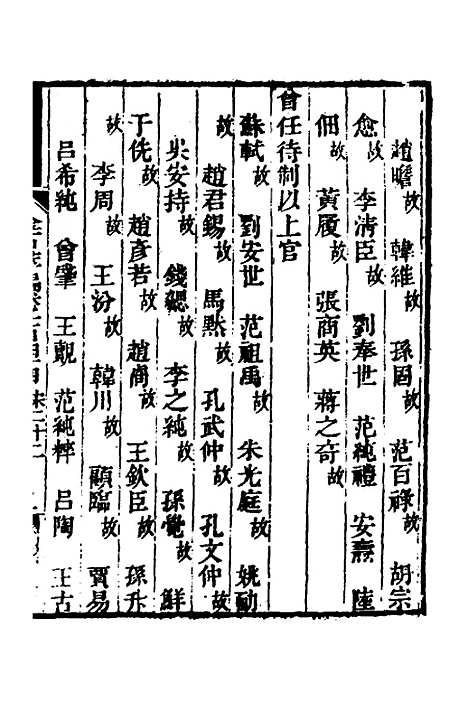 趙瞻故　韓維故　孫固故　范百祿故　胡宗
愈故　李清臣故　劉奉世　范純禮　安燾　陸
佃故　黃履故　張商英　蔣之奇故
曾任待制以上官
蘇軾故　劉安世　范祖禹故　朱光庭故　姚勔
故　趙君錫故　馬黙故　孔武仲故　孔文仲故
吳安持故　錢勰故　李之純故　孫覺故　鮮
于侁故　趙彥若故　趙卨故　王欽臣故　孫升
故　李周故　王汾故　韓川故　顧臨故　賈易
呂希純　曾肇　王覿　范純粹　呂陶　王古